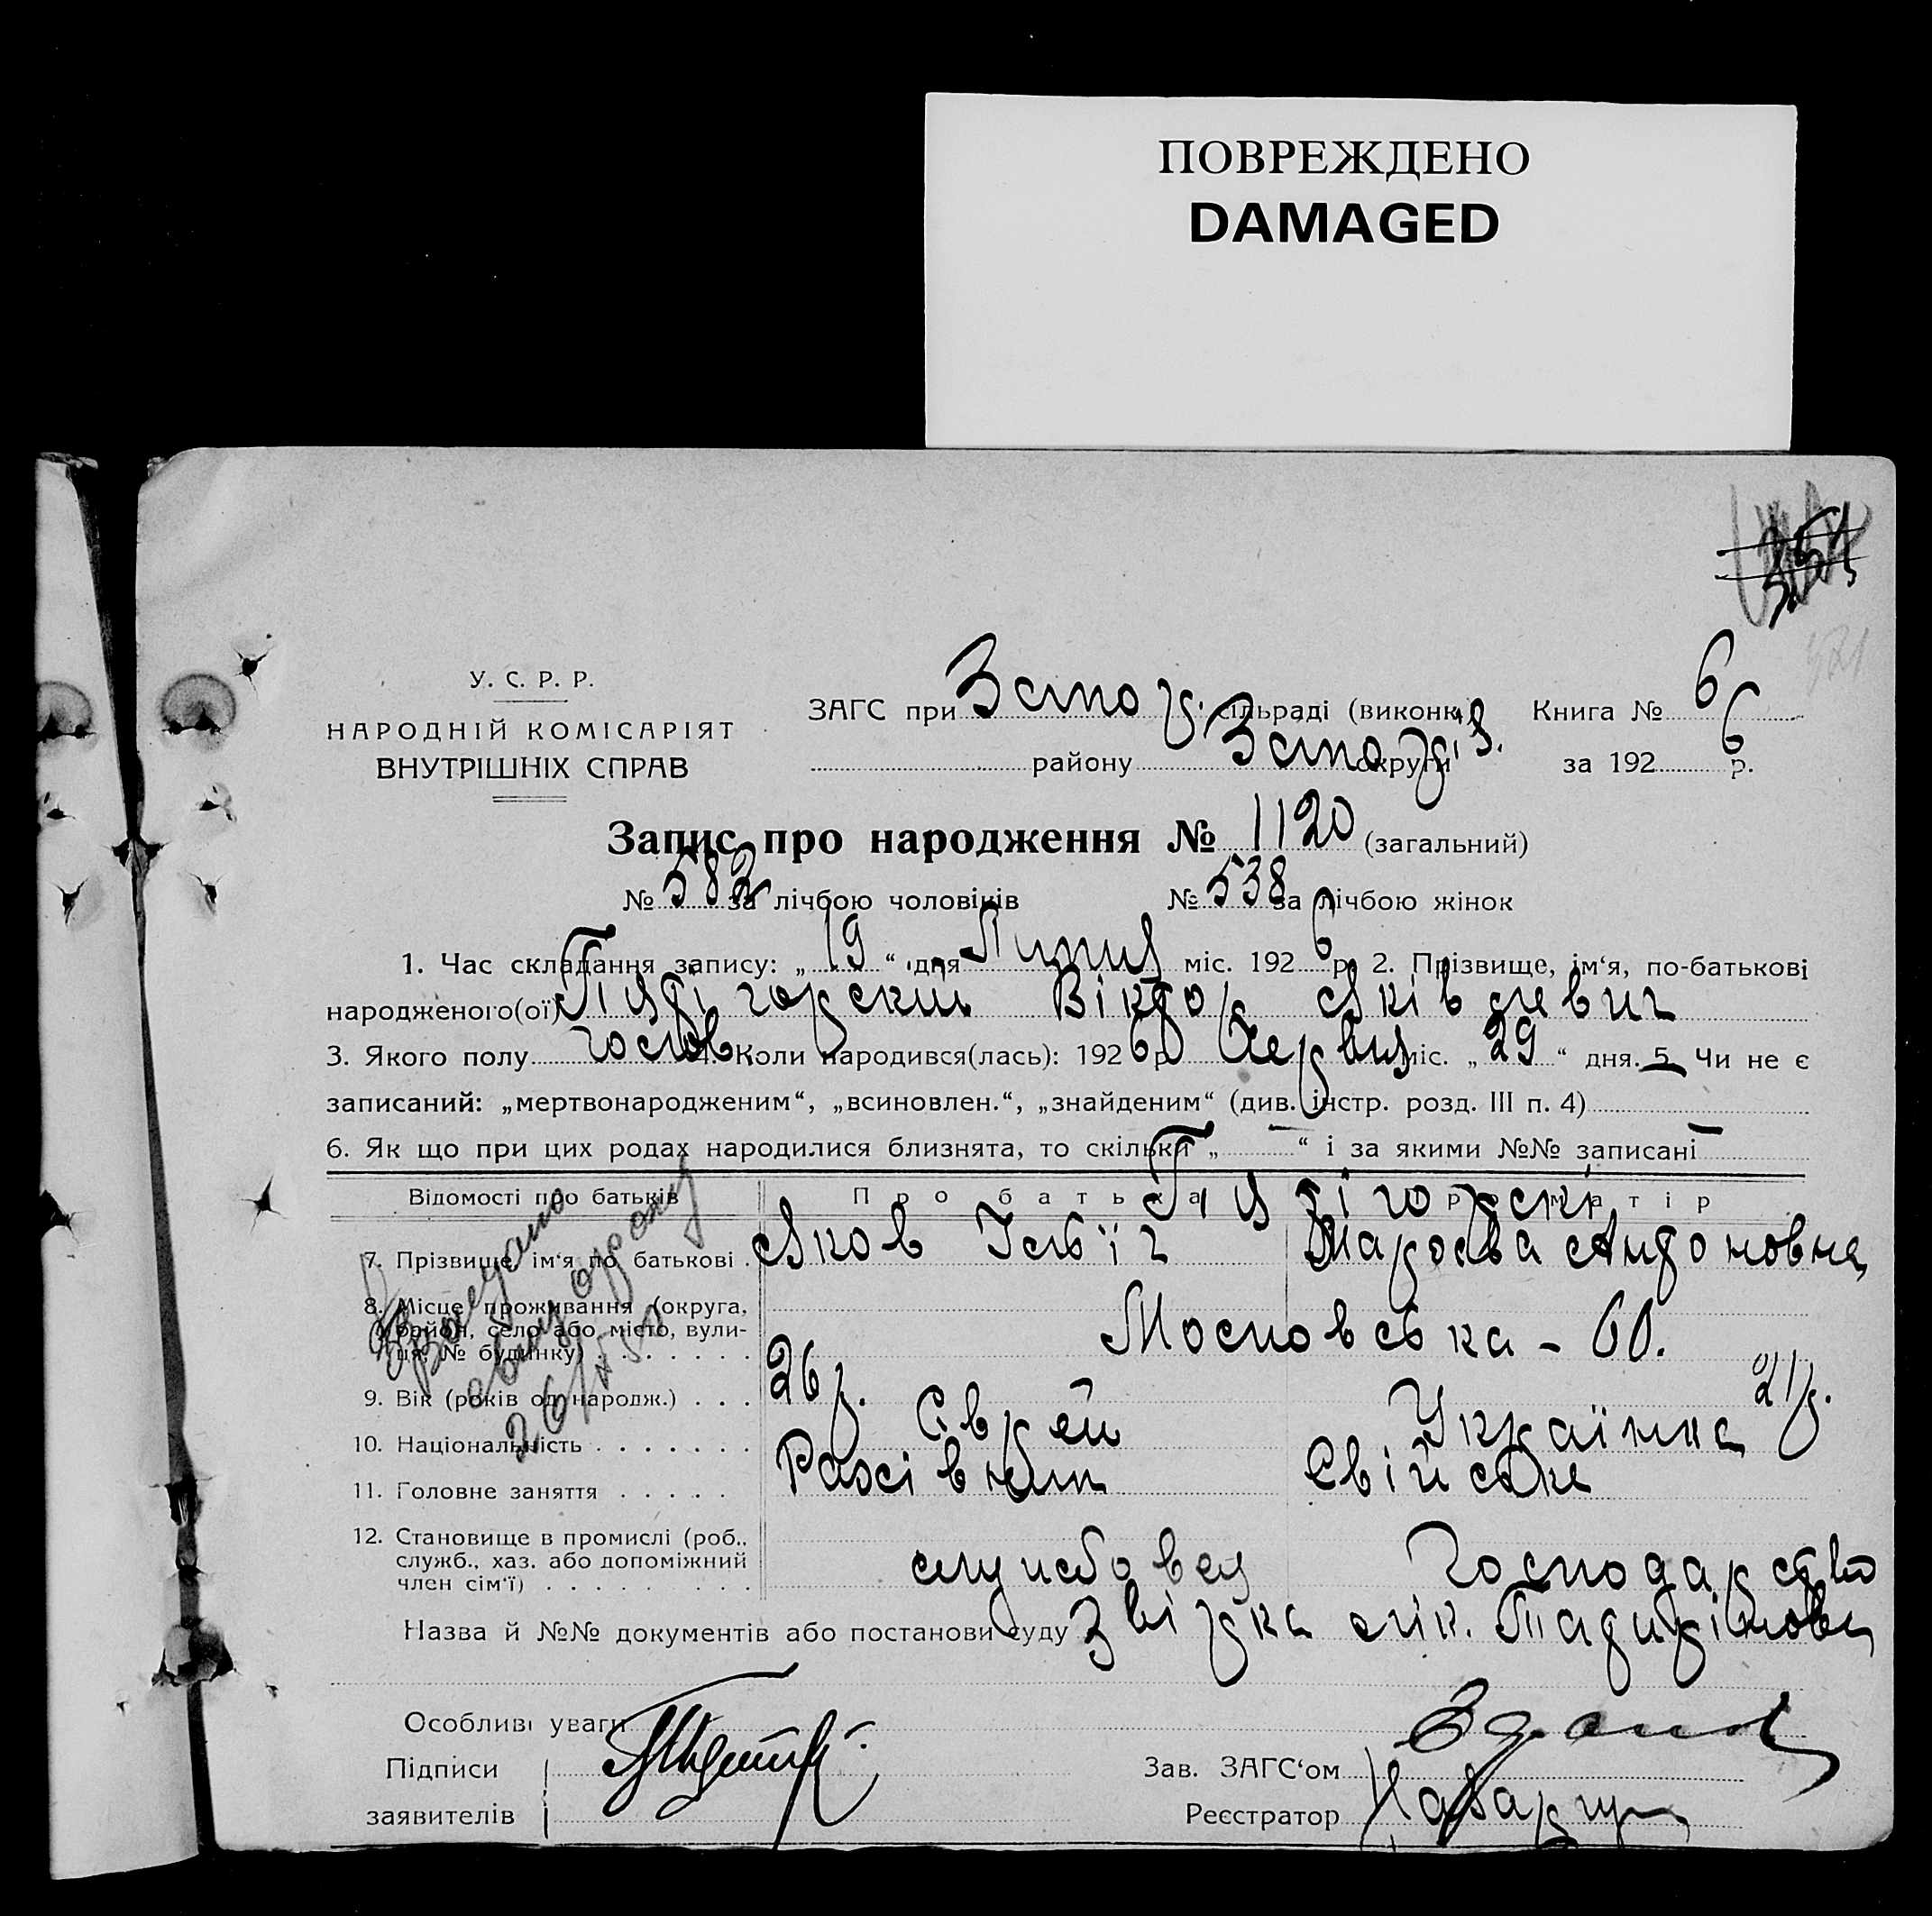 ПОВРЕЖДЕНО
DAMAGED
У. С. Р. Р.
НАРОДНІЙ КОМІСАРІЯТ
ВНУТРІШНІХ СПРАВ
ЗАГС при сільраді (виконк.) Книга № 6
району округи за 1926 р.
Запис про народження № 1120 (загальний)
№ 582 за лічбою чоловіків № 538 за лічбою жінок
1. Час складання запису: „19“ дня Липня міс. 1926 р. 2. Прізвище, ім‘я, по-батькові
народженого(ої) Пятігорский Віктор Яківлевич
3. Якого полу чолов. 4. Коли народився(лась): 1926 р. Червня міс. „29“ дня. 5. Чи не є
записаний: „мертвонародженим“, „всиновлен.“, „знайденим“ (див. інстр. розд. III п. 4)
6. Як що при цих родах народилися близнята, то скільки „ — “ і за якими №№ записані —
Відомості про батьків Про батька Про матір
Пятігорскі
7. Прізвище, ім‘я по батькові . Яков Ільїч Антоновна
8. Місце проживання (округа,
район, село або місто, вули-
ця, № будинку) . . . . . . . Московська - 60.
9. Вік (років од народж.) . . . 26 р. 21 р.
10. Національність . . . . . . . Єврей Українка
11. Головне заняття . . . . . Рахівник Свійське
12. Становище в промислі (роб.,
служб., хаз. або допоміжний
член сім‘ї) . . . . . . . . службовец Господарство
Назва й №№ документів або постанови суду Звірка лік.
Особливі уваги
Підписи
заявителів
Зав. ЗАГС‘ом
Реєстратор